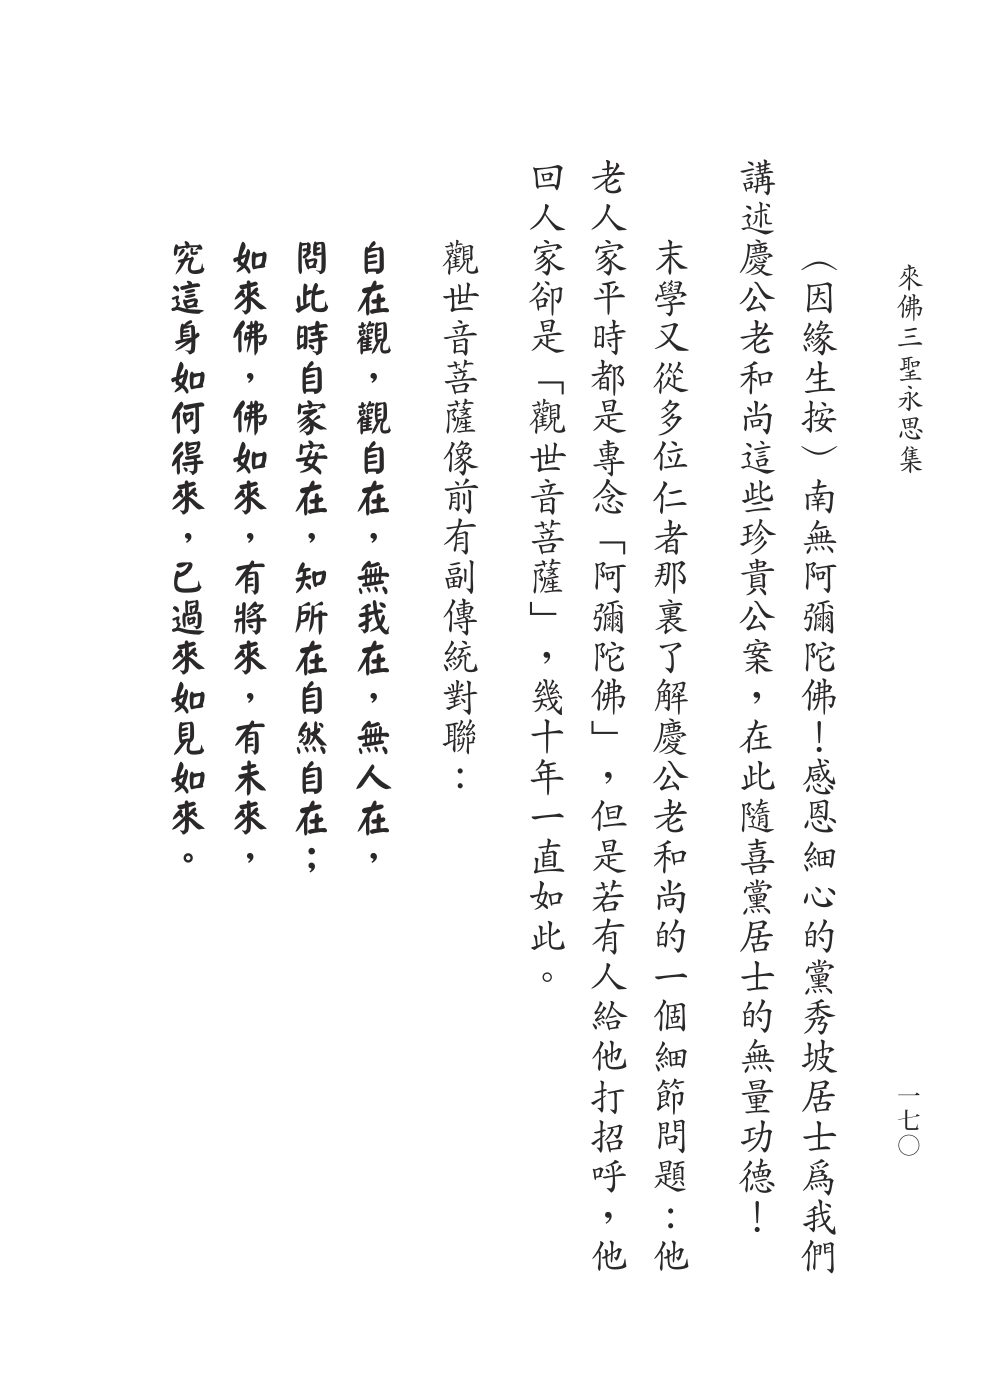 來佛三聖永思集
一七〇
（因緣生按）南無阿彌陀佛！感恩細心的黨秀坡居士爲我們
講述慶公老和尚這些珍貴公案，在此隨喜黨居士的無量功德！
末學又從多位仁者那裏了解慶公老和尚的一個細節問題：他
老人家平時都是專念「阿彌陀佛」，但是若有人給他打招呼，他
回人家卻是「觀世音菩薩」，幾十年一直如此。
觀世音菩薩像前有副傳統對聯：
自在觀，觀自在，無我在，無人在，
問此時自家安在，知所在自然自在；
如來佛，佛如來，有將來，有未來，
究這身如何得來，已過來如見如來。